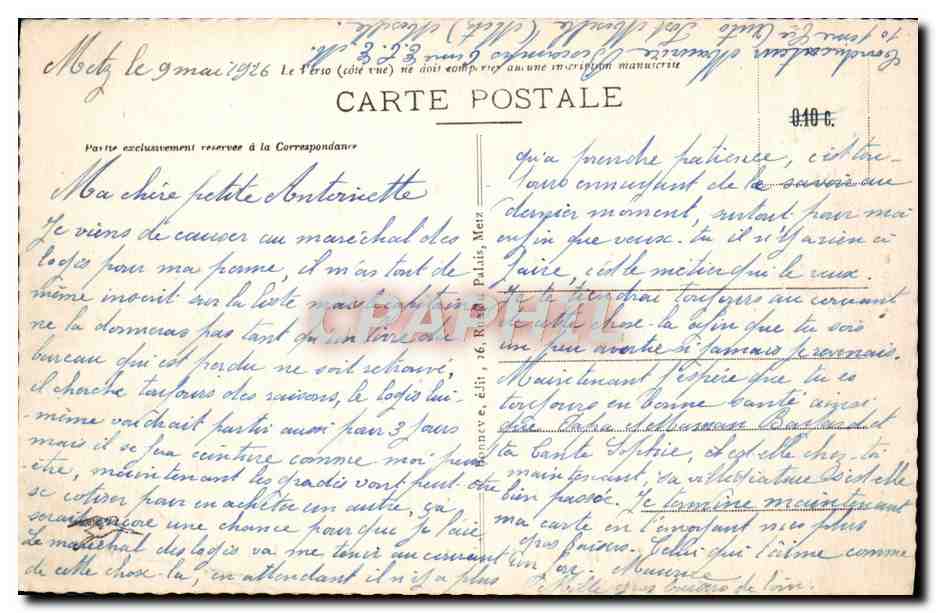 Conducteur Maurice
10 ème Cie Auto Fort Moselle (Metz) Moselle
Metz le 9 mai 1926
Le Verso (côté vue) ne dois comporter aucune inscription manuscrite
CARTE POSTALE
0.10 c.
Partie exclusivement réservée à la Correspondance
Ma chère petite Antoinette
Je viens de causer au maréchal des
logis pour ma perme, il m'as tout de
même inscrit sur la liste mais le capitaine
ne la donneras pas tant qu'un livre du
bureau qui est perdu ne soit retrouvé,
il cherche toujours des raisons, le logis lui-
même voudrait partir aussi pour 3 jours
mais il se fera ceinture comme moi peut
être, maintenant les gradés vont peut-être
se cotiser pour en achêter un autre, ça
serait encore une chance pour que je l'aie
Le maréchal des logis va me tenir au courant
de cette chose-la, en attendant il n'y a plus
Bonneve, édit., 16, Rue du Palais, Metz
qu'a prendre patience, c'est tou-
jours ennuyant de le savoir au
dernier moment, surtout pour moi
enfin que veux-tu il n'y a rien à
faire, c'est le métier qui le veux.
Je te tiendrai toujours au courant
de cette chose-la afin que tu sois
un peu avertie si jamais je venais.
Maintenant j'espère que tu es
toujours en bonne santé ainsi
que Papa et Maman et
ta Tante Sophie, est-elle chez-toi
maintenant, sa villégiature s'est-elle
bien passée. Je termine maintenant
ma carte en t'envoyant mes plus
gros baisers. Celui qui t'aime comme
un fou. Maurice
Mille gros baisers de loin.
CPAPHIL